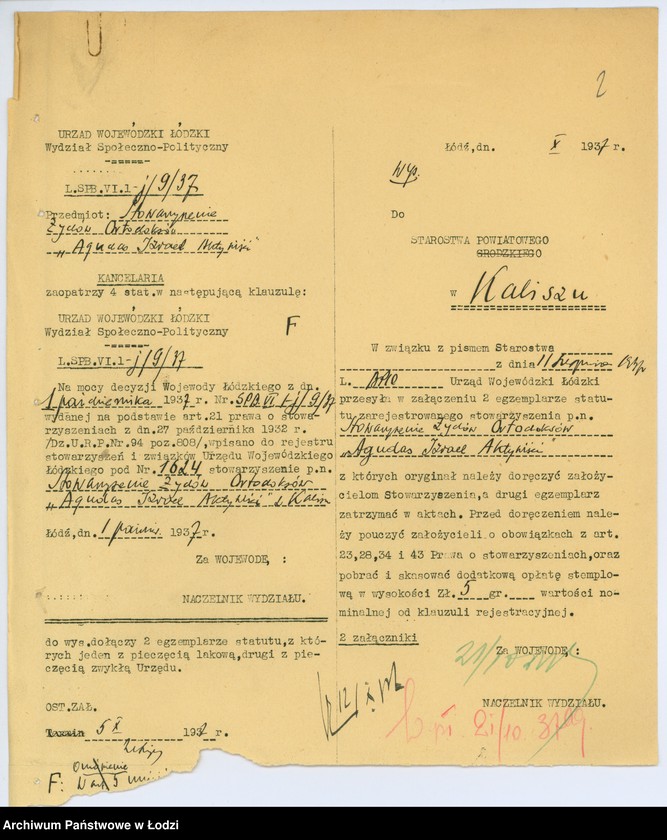 2
URZAD WOJEWÓDZKI ŁÓDZKI
Wydział Społeczno-Polityczny
-=====-
L.SPB.VI.1-j/9/37
Przedmiot: Stowarzyszenie
Żydów Ortodoksów
"Agudas Isroel
KANCELARIA
zaopatrzy 4 stat.w następującą klauzulę:
URZAD WOJEWÓDZKI ŁÓDZKI
Wydział Społeczno-Polityczny
F
L.SPB.VI.1-j/9/37
Na mocy decyzji Wojewody Łódzkiego z dn.
1 października 1937 r. Nr. SPB.VI.1-j/9/37
wydanej na podstawie art.21 prawa o stowa-
rzyszeniach z dn.27 października 1932 r.
/Dz.U.R.P.Nr.94 poz.808/,wpisano do rejestru
stowarzyszeń i związków Urzędu Wojewódzkiego
Łódzkiego pod Nr. 1624 stowarzyszenie p.n.
Stowarzyszenie Żydów Ortodoksów
"Agudas Isroel
Łódź,dn. 1 paźdz. 1937 r.
Za WOJEWODĘ, :
NACZELNIK WYDZIAŁU.
do wys.dołączy 2 egzemplarze statutu,z któ-
rych jeden z pieczęcią lakową,drugi z pie-
częcią zwykłą Urzędu.
OST.ZAŁ.
5 X 1937 r.
F:
Łódź,dn. X 1937 r.
Wyp.
Do
STAROSTWA POWIATOWEGO
GRODZKIEGO
w Kaliszu
W związku z pismem Starostwa
z dnia 11 sierpnia
L. Urząd Wojewódzki Łódzki
przesyła w załączeniu 2 egzemplarze statu-
tu,zarejestrowanego stowarzyszenia p.n.
Stowarzyszenie Żydów Ortodoksów
"Agudas Isroel
z których oryginał należy doręczyć założy-
cielom Stowarzyszenia,a drugi egzemplarz
zatrzymać w aktach. Przed doręczeniem nale-
ży pouczyć założycieli o obowiązkach z art.
23,28,34 i 43 Prawa o stowarzyszeniach,oraz
pobrać i skasować dodatkową opłatę stemplo-
wą w wysokości Zł. 5 gr. wartości no-
minalnej od klauzuli rejestracyjnej.
2 załączniki
Za WOJEWODĘ, :
21/10
12/X
NACZELNIK WYDZIAŁU.
21/10 37
Archiwum Państwowe w Łodzi